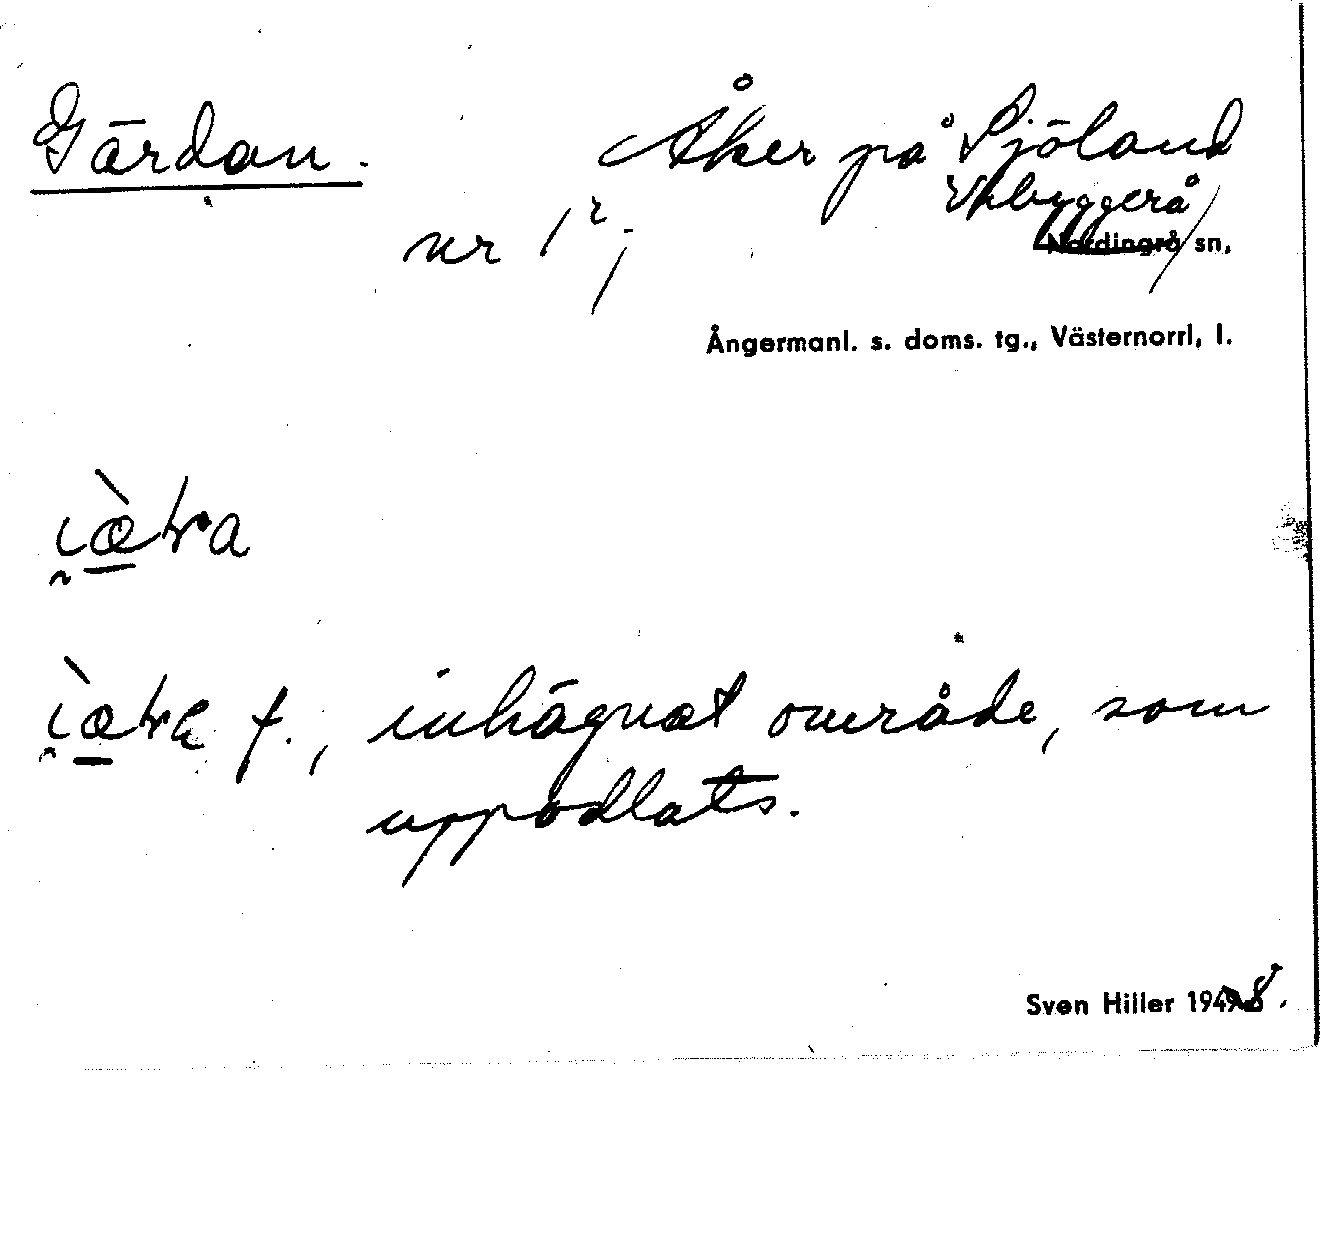 Gärdan. Åker på Sjöland
Vibyggerå
nr 1²; Nordingrå sn,
Ångermanl. s. doms. tg., Västernorrl, l.
f., inhägnat område, som
uppodlats.
Sven Hiller 1948.